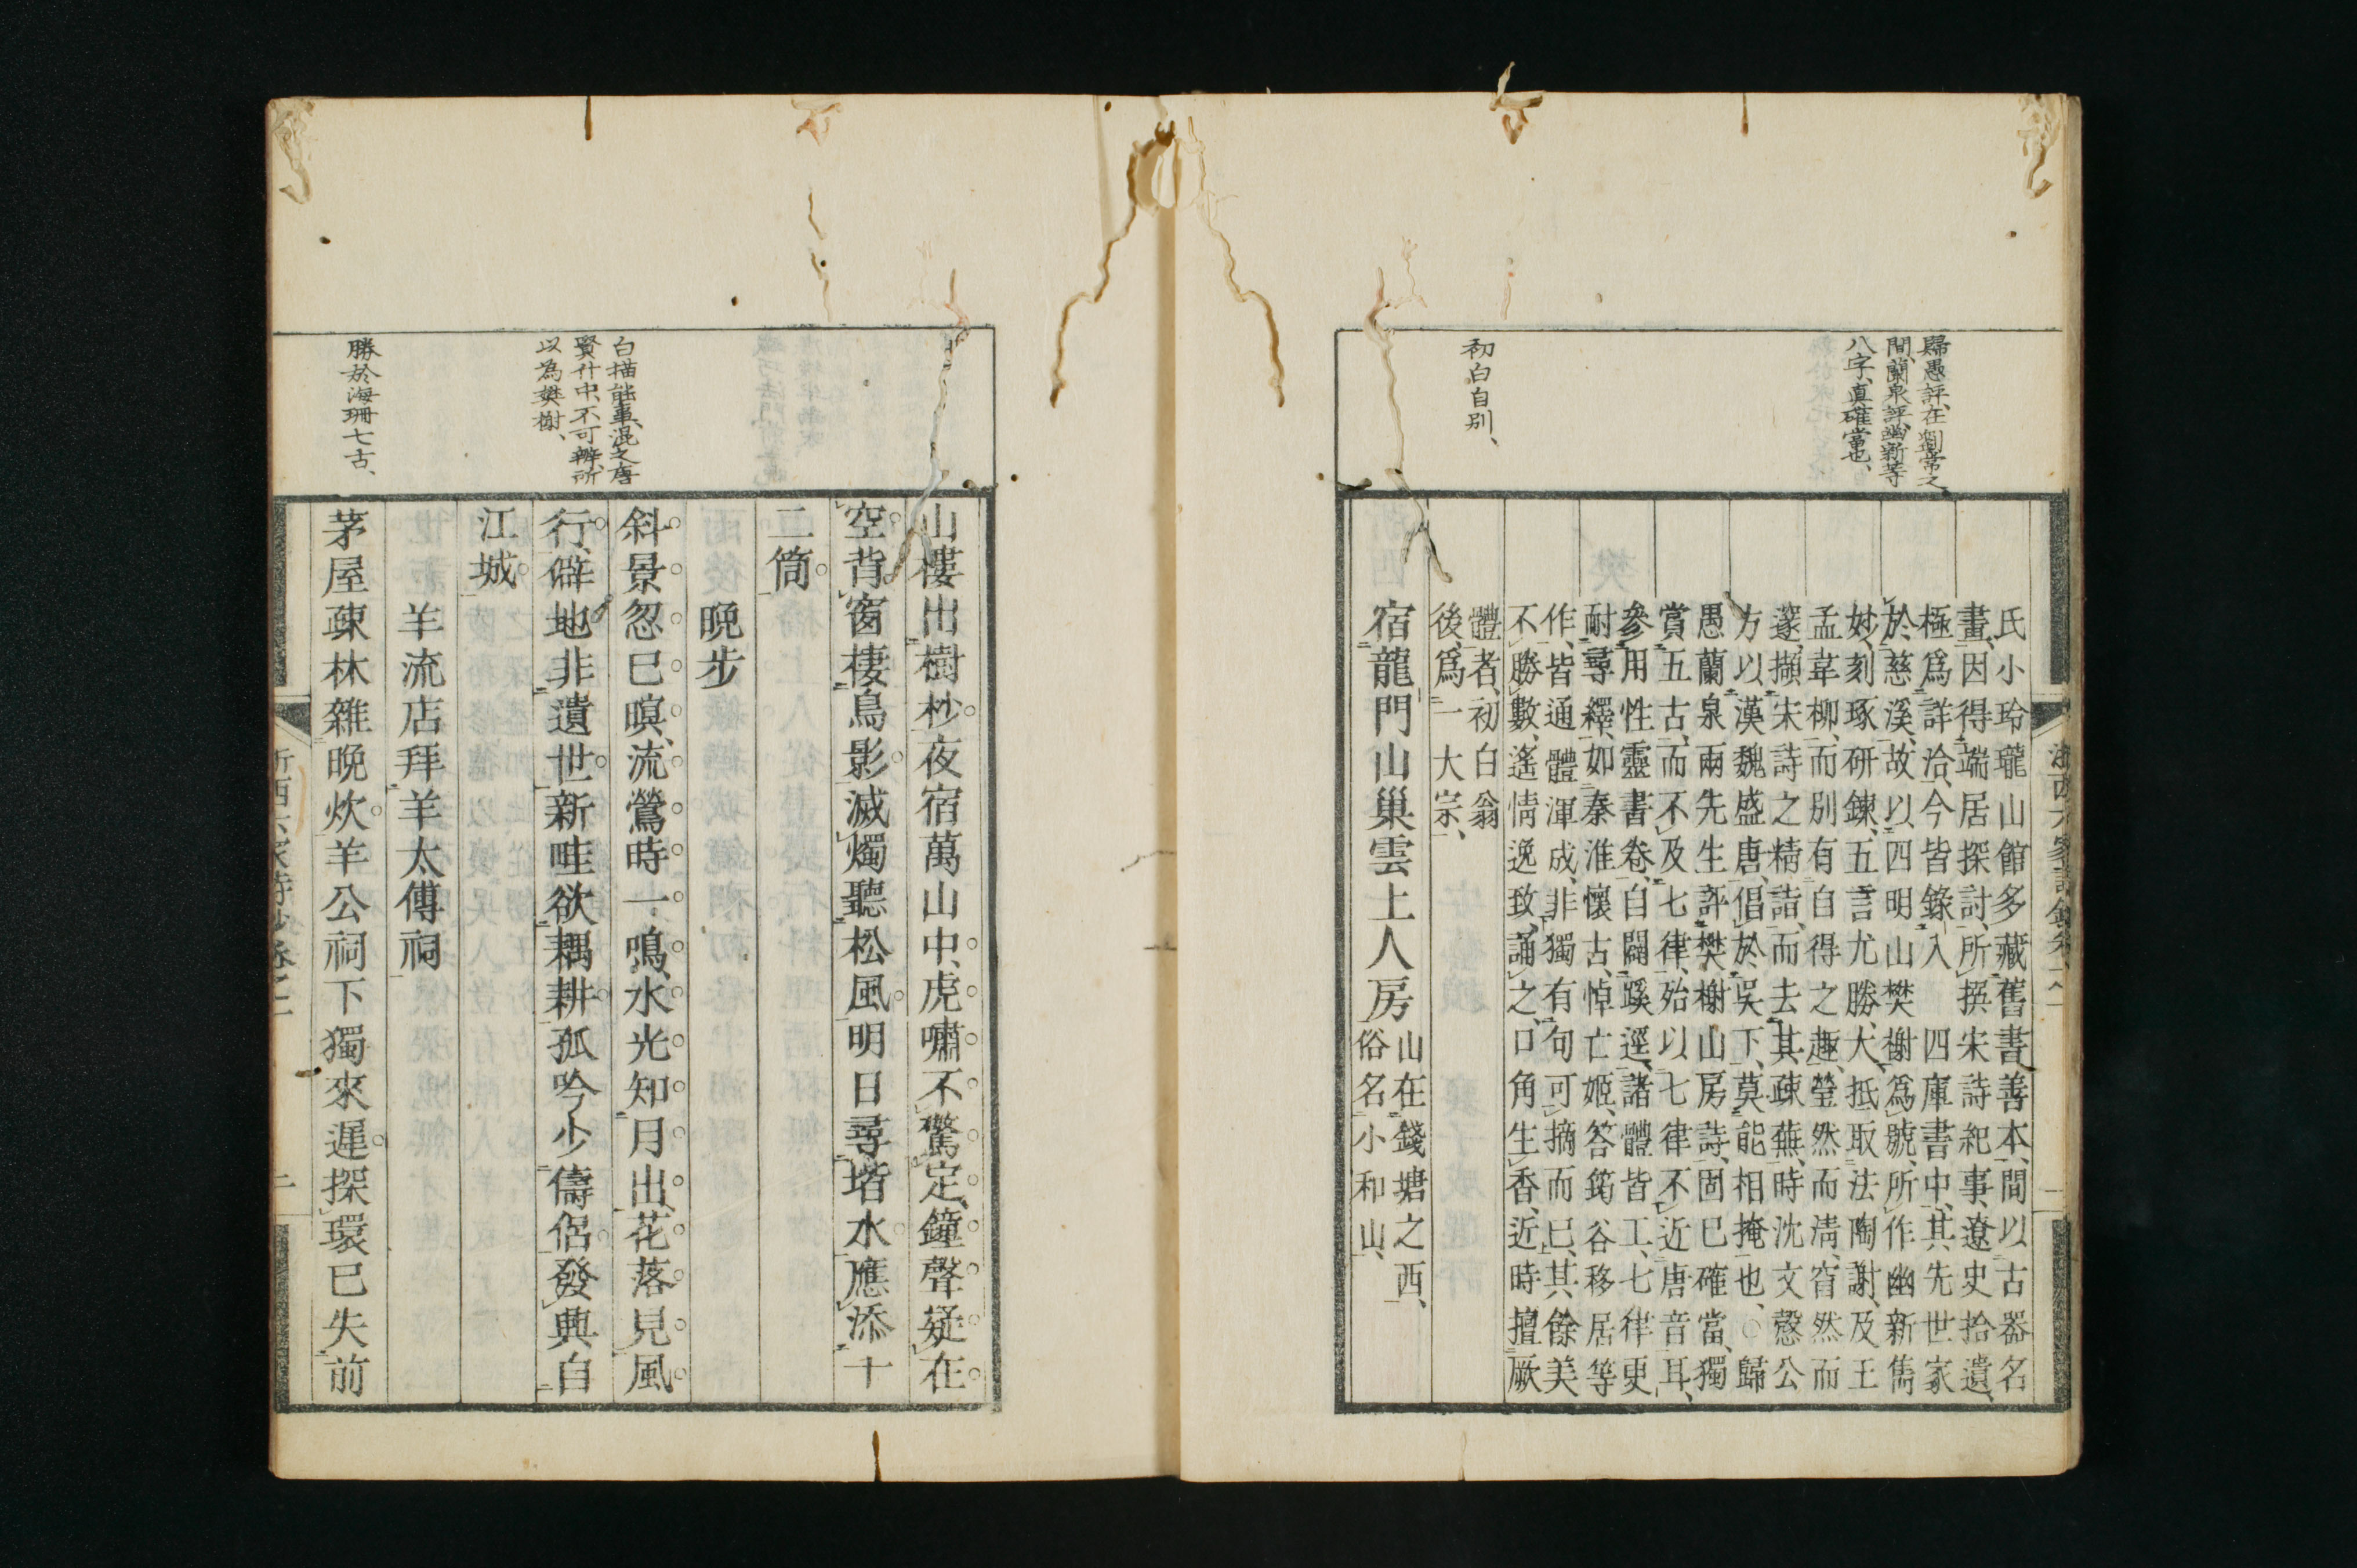 歸愚評、在獨常之
間、蘭泉評、幽新等
八字、真確當也、
初白自別、
氏小玲瓏山館多藏舊書善本、間以古器名
畫、因得端居探討、所撰宋詩紀事、遼史拾遺、
極爲詳洽、今皆錄入四庫書中、其先世家
於慈溪、故以四明山樊榭爲號、所作幽新雋
妙、刻琢研鍊、五言尤勝、大抵取法陶謝、及王
孟韋柳、而別有自得之趣、瑩然而淸、窅然而
邃、擷宋詩之精詣、而去其疎蕪、時沈文慤公
方以漢魏盛唐、倡於吳下、莫能相掩也、○歸
愚蘭泉兩先生評樊榭山房詩、固已確當、獨
賞五古、而不及七律、殆以七律不近唐音耳、
參用性靈書卷、自闢蹊逕、諸體皆工、七律更
耐尋繹、如秦淮懷古、悼亡姬、答筠谷移居等
作、皆通體渾成、非獨有句可摘而已、其餘美
不勝數、遙情逸致、誦之、口角生香、近時擅厥
體者、初白翁
後、爲一大宗、
宿龍門山巢雲上人房
山在錢塘之西、
俗名小和山、
白描能事、混之唐
賢什中、不可辨、所
以爲樊榭、
勝於海珊七古、
山樓出樹杪夜宿萬山中、虎嘯不驚定、鐘聲疑在
空背窗棲鳥影滅燭聽松風明日尋堦水應添十
二筒
晩步
斜景忽已暝、流鶯時一鳴、水光知月出、花落見風
行、僻地非遺世新畦欲耦耕孤吟少儔侶發興自
江城
羊流店拜羊太傅祠
茅屋疎林雜晩炊羊公祠下獨來遲探環已失前